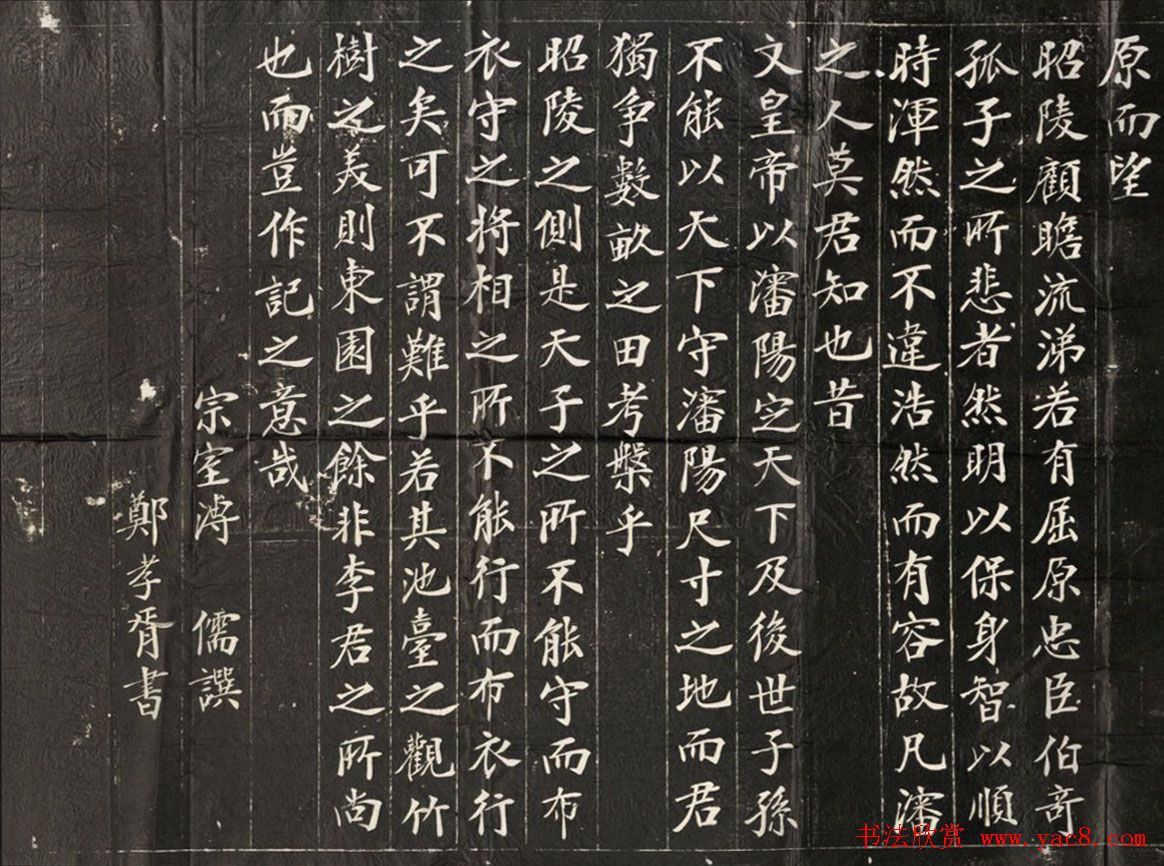 原而望
昭陵顧瞻流涕若有屈原忠臣伯竒
孤子之所悲者然明以保身智以順
時渾然而不違浩然而有容故凡瀋
之人莫君知也昔
文皇帝以瀋陽定天下及後世子孫
不能以天下守瀋陽尺寸之地而君
獨爭數畝之田考槃乎
昭陵之側是天子之所不能守而布
衣守之將相之所不能行而布衣行
之矣可不謂難乎若其池臺之觀竹
樹之美則東園之餘非李君之所尚
也而豈作記之意哉
宗室溥 儒譔
鄭孝胥書
书法欣赏 www.yac8.com